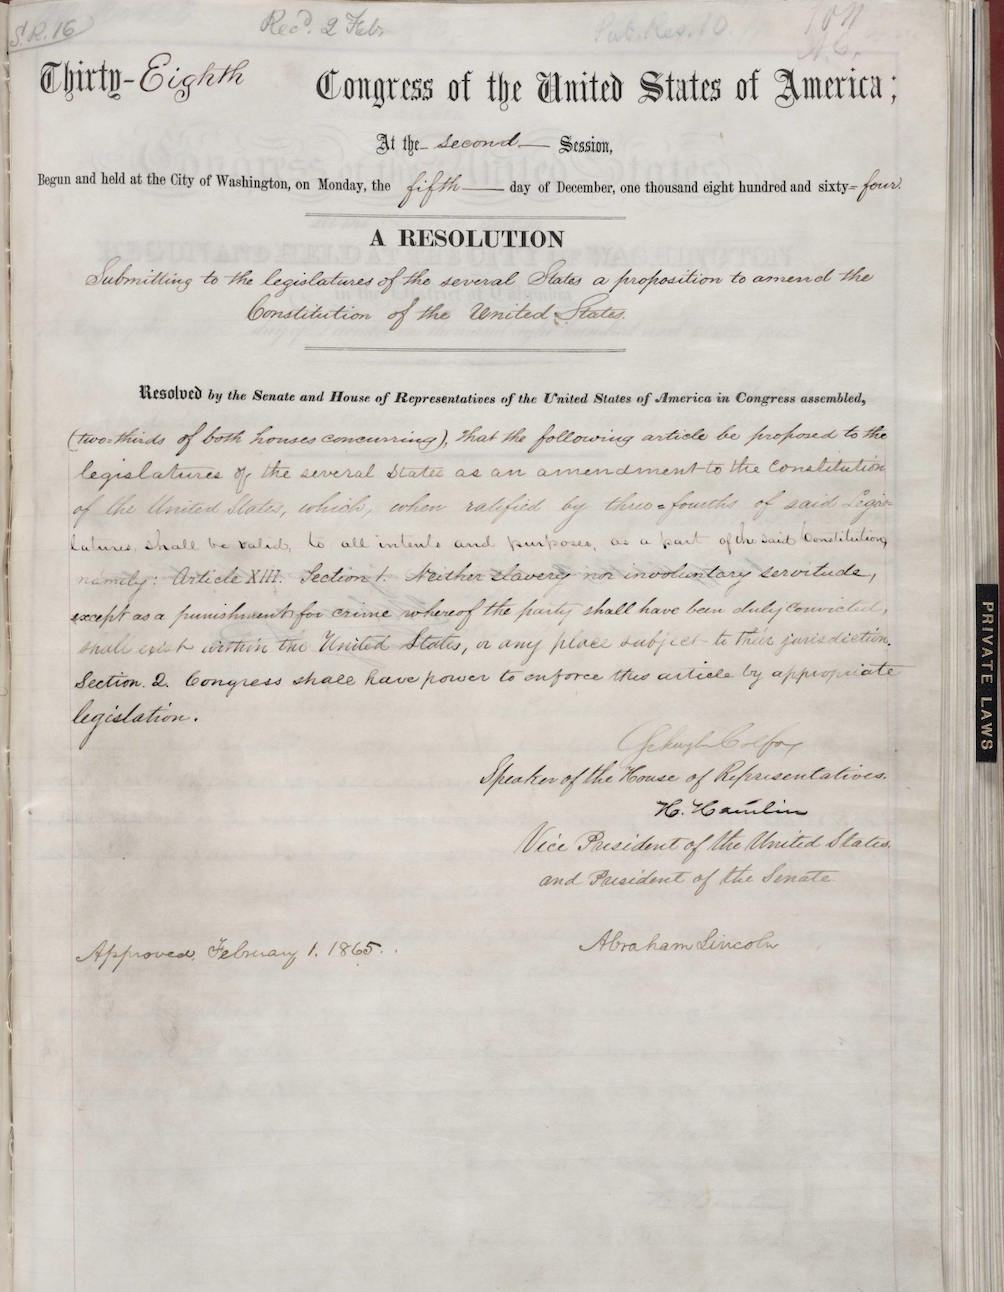 S.R. 16
Rec'd. 2 Feb.
Pub. Res. 10
Thirty-Eighth Congress of the United States of America;
At the second Session,
Begun and held at the City of Washington, on Monday, the fifth day of December, one thousand eight hundred and sixty-four.
A RESOLUTION
Submitting to the legislatures of the several States a proposition to amend the
Constitution of the United States.
Resolved by the Senate and House of Representatives of the United States of America in Congress assembled,
(two-thirds of both houses concurring), that the following article be proposed to the
legislatures of the several States as an amendment to the Constitution
of the United States, which, when ratified by three-fourths of said Legis-
latures, shall be valid, to all intents and purposes, as a part of the said Constitution,
namely: Article XIII. Section 1. Neither slavery nor involuntary servitude,
except as a punishment for crime whereof the party shall have been duly convicted,
shall exist within the United States, or any place subject to their jurisdiction.
Section. 2. Congress shall have power to enforce this article by appropriate
legislation.
Schuyler Colfax
Speaker of the House of Representatives.
H. Hamlin
Vice President of the United States,
and President of the Senate.
Approved, February 1. 1865.
Abraham Lincoln
PRIVATE LAWS